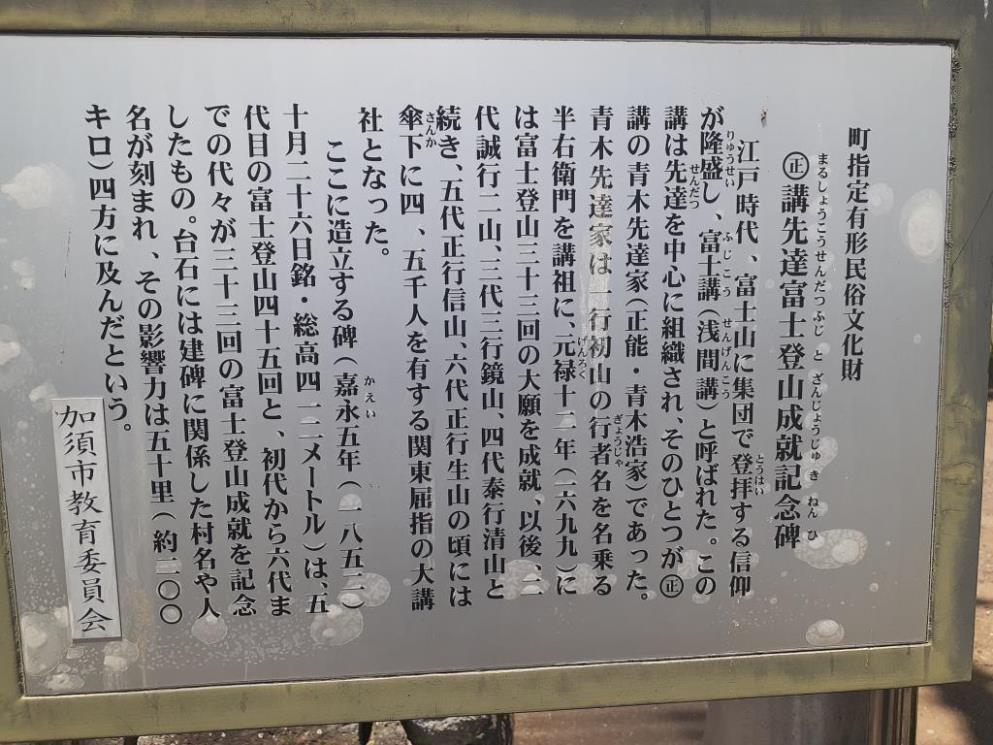 町指定有形民俗文化財
まるしょうこうせんだつふじとざんじょうじゅきねんひ
㊣講先達富士登山成就記念碑
江戸時代、富士山に集団で登拝する信仰
とうはい
が隆盛し、富士講(浅間講)と呼ばれた。この
りゅうせい ふじこう せんげんこう
講は先達を中心に組織され、そのひとつが㊣
せんだつ
講の青木先達家(正能・青木浩家)であった。
青木先達家は一行初山の行者名を名乗る
ぎょうじゃ
半右衛門を講祖に、元禄十二年(一六九九)に
げんろく
は富士登山三十三回の大願を成就、以後、二
代誠行二山、三代三行鏡山、四代泰行清山と
続き、五代正行信山、六代正行生山の頃には
傘下に四、五千人を有する関東屈指の大講
さんか
社となった。
ここに造立する碑(嘉永五年(一八五二)
かえい
十月二十六日銘・総高四・一二メートル)は、五
代目の富士登山四十五回と、初代から六代ま
での代々が三十三回の富士登山成就を記念
したもの。台石には建碑に関係した村名や人
名が刻まれ、その影響力は五十里(約二〇〇
キロ)四方に及んだという。
加須市教育委員会